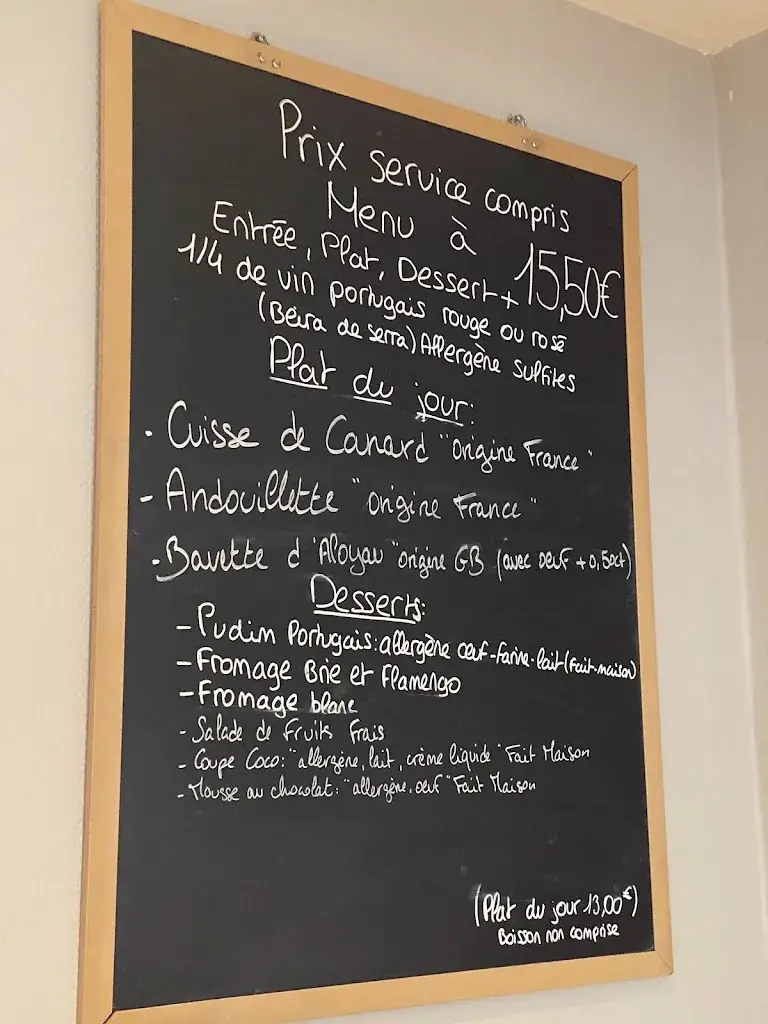 Prix service compris
Menu à 15,50€
Entrée, Plat, Dessert +
1/4 de vin portugais rouge ou rosé
(Beira de serra) Allergène sulfites
Plat du jour:
- Cuisse de Canard "origine France"
- Andouillette "origine France"
- Bavette d'Aloyau "origine GB (avec oeuf + 0,50ct)
Desserts:
- Pudim Portugais: allergène oeuf-farine-lait (Fait-maison)
- Fromage Brie et Flamengo
- Fromage blanc
- Salade de Fruits Frais
- Coupe Coco: "allergène, lait, crème liquide" Fait Maison
- Mousse au chocolat: "allergène. oeuf" Fait Maison
(Plat du jour 13,00€)
Boisson non comprise